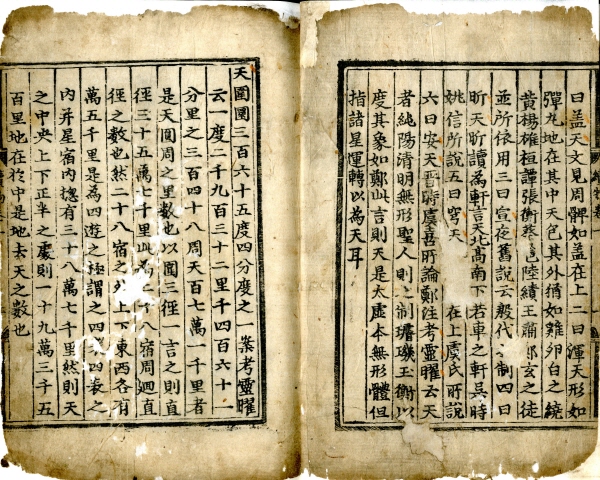 曰盖天文見周髀如盖在上二曰渾天形如
彈丸地在其中天包其外猶如雞卵白之繞
黃楊雄桓譚張衡蔡邕陸績王肅鄭玄之徒
並所依用三曰宣夜舊說云殷代制四曰
昕天昕讀為軒言天北髙南下若車之軒吳時
姚信所說五曰穹天在上虞氏所說
六曰安天晋時虞喜所論鄭注考靈曜云天
者純陽清明無形聖人則制璿璣玉衡以
度其象如鄭此言則天是太虛本無形體但
指諸星運轉以為天耳
天圍圜三百六十五度四分度之一案考靈曜
云一度二千九百三十二里千四百六十一
分里之三百四十八周天百七萬一千里者
是天圓周之里數也以圍三徑一言之則直
徑三十五萬七千里此為二十八宿周迴直
徑之數也然二十八宿之外上下東西各有
萬五千里是為四遊之極謂之四四表之
內并星宿內揔有三十八萬七千里然則天
之中央上下正半之處則一十九萬三千五
百里地在於中是地去天之數也